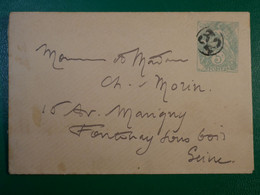 Monsieur et Madame
Ch. Morin.
16 Av. Marigny
Fontenay sous bois
Seine.
5